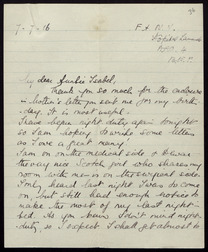 7-7-16
My dear Auntie Isabel,
Thank you so much for the enclosure
in Mother's letter you sent me for my birth-
day. It is most useful.
I have begun night duty again tonight
so I am hoping to write some letters
as I owe a great many.
I am on the medical side & have
the very nice Scotch girl who shares my
room with me
I only heard last night I was to come
on, but I still had enough notice to
make the most of my last night in
bed. As you know I don't mind night
duty, so I expect I shall get almost to